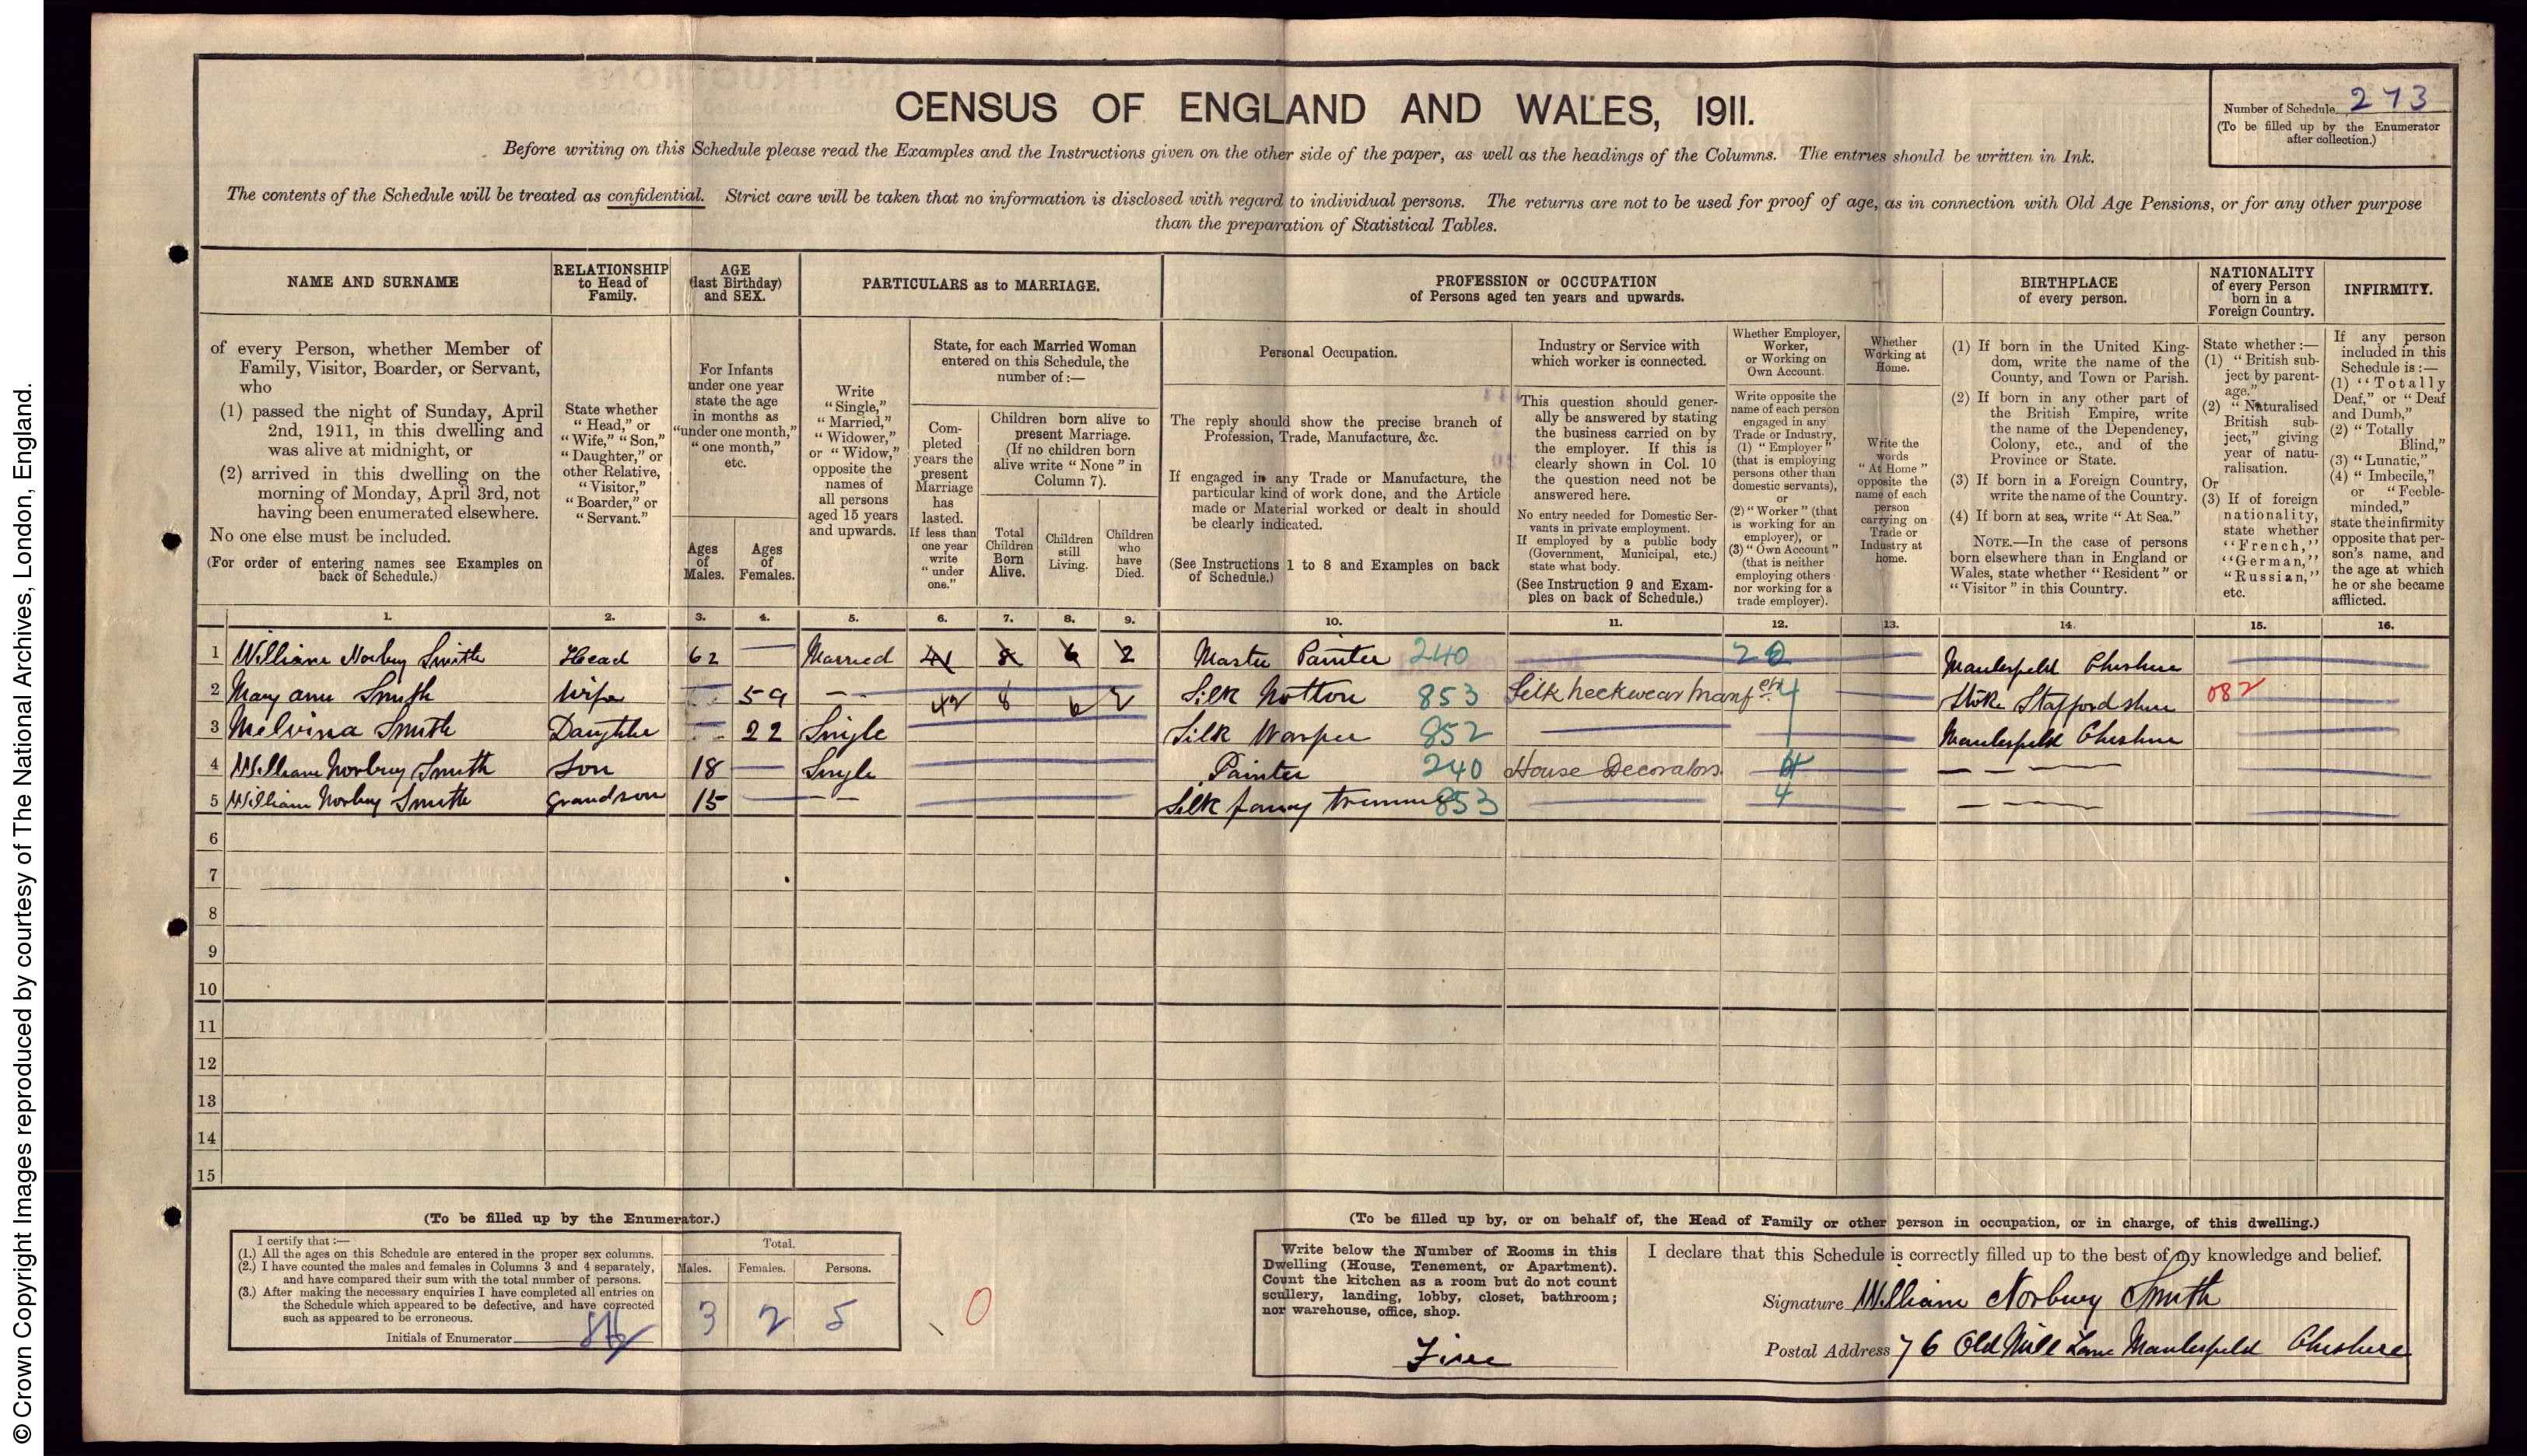 © Crown Copyright Images reproduced by courtesy of The National Archives, London, England.
CENSUS OF ENGLAND AND WALES, 1911.
Number of Schedule 273
(To be filled up by the Enumerator
after collection.)
Before writing on this Schedule please read the Examples and the Instructions given on the other side of the paper, as well as the headings of the Columns. The entries should be written in Ink.
The contents of the Schedule will be treated as confidential. Strict care will be taken that no information is disclosed with regard to individual persons. The returns are not to be used for proof of age, as in connection with Old Age Pensions, or for any other purpose
than the preparation of Statistical Tables.
NAME AND SURNAME
of every Person, whether Member of
Family, Visitor, Boarder, or Servant,
who
(1) passed the night of Sunday, April
2nd, 1911, in this dwelling and
was alive at midnight, or
(2) arrived in this dwelling on the
morning of Monday, April 3rd, not
having been enumerated elsewhere.
No one else must be included.
(For order of entering names see Examples on
back of Schedule.)
RELATIONSHIP
to Head of
Family.
State whether
"Head," or
"Wife," "Son,"
"Daughter," or
other Relative,
"Visitor,"
"Boarder," or
"Servant."
AGE
(last Birthday)
and SEX.
For Infants
under one year
state the age
in months as
"under one month,"
"one month,"
etc.
Ages
of
Males.
Ages
of
Females.
PARTICULARS as to MARRIAGE.
Write
"Single,"
"Married,"
"Widower,"
or "Widow,"
opposite the
names of
all persons
aged 15 years
and upwards.
State, for each Married Woman
entered on this Schedule, the
number of:—
Com-
pleted
years the
present
Marriage
has
lasted.
If less than
one year
write
"under
one."
Children born alive to
present Marriage.
(If no children born
alive write "None" in
Column 7).
Total
Children
Born
Alive.
Children
still
Living.
Children
who
have
Died.
PROFESSION or OCCUPATION
of Persons aged ten years and upwards.
Personal Occupation.
The reply should show the precise branch of
Profession, Trade, Manufacture, &c.
If engaged in any Trade or Manufacture, the
particular kind of work done, and the Article
made or Material worked or dealt in should
be clearly indicated.
(See Instructions 1 to 8 and Examples on back
of Schedule.)
Industry or Service with
which worker is connected.
This question should gener-
ally be answered by stating
the business carried on by
the employer. If this is
clearly shown in Col. 10
the question need not be
answered here.
No entry needed for Domestic Ser-
vants in private employment.
If employed by a public body
(Government, Municipal, etc.)
state what body.
(See Instruction 9 and Exam-
ples on back of Schedule.)
Whether Employer,
Worker,
or Working on
Own Account.
Write opposite the
name of each person
engaged in any
Trade or Industry,
(1) "Employer"
(that is employing
persons other than
domestic servants),
or
(2) "Worker" (that
is working for an
employer), or
(3) "Own Account"
(that is neither
employing others
nor working for a
trade employer).
Whether
Working at
Home.
Write the
words
"At Home"
opposite the
name of each
person
carrying on
Trade or
Industry at
home.
BIRTHPLACE
of every person.
(1) If born in the United King-
dom, write the name of the
County, and Town or Parish.
(2) If born in any other part of
the British Empire, write
the name of the Dependency,
Colony, etc., and of the
Province or State.
(3) If born in a Foreign Country,
write the name of the Country.
(4) If born at sea, write "At Sea."
NOTE.—In the case of persons
born elsewhere than in England or
Wales, state whether "Resident" or
"Visitor" in this Country.
NATIONALITY
of every Person
born in a
Foreign Country.
State whether:—
(1) "British sub-
ject by parent-
age."
(2) "Naturalised
British sub-
ject," giving
year of natu-
ralisation.
Or
(3) If of foreign
nationality,
state whether
"French,"
"German,"
"Russian,"
etc.
INFIRMITY.
If any person
included in this
Schedule is:—
(1) "Totally
Deaf," or "Deaf
and Dumb,"
(2) "Totally
Blind,"
(3) "Lunatic,"
(4) "Imbecile,"
or "Feeble-
minded,"
state the infirmity
opposite that per-
son's name, and
the age at which
he or she became
afflicted.
1. 2. 3. 4. 5. 6. 7. 8. 9. 10. 11. 12. 13. 14. 15. 16.
1 William Norbury Smith Head 62 — Married 41 8 6 2 Master Painter 240 — 20 Macclesfield Cheshire —
2 Mary ann Smith Wife — 59 — 42 8 6 2 Silk 853 Silk neckwear manf 4 — Stoke Staffordshire 082 —
3 Melvina Smith Daughter — 22 Single — Silk Warper 852 — Macclesfield Cheshire —
4 William Norbury Smith Son 18 — Single — Painter 240 House Decorators 4 — — — —
5 William Norbury Smith Grandson 15 — — — Silk fancy trimming 853 — 4 — — — —
6
7
8
9
10
11
12
13
14
15
(To be filled up by the Enumerator.)
I certify that:—
(1.) All the ages on this Schedule are entered in the proper sex columns.
(2.) I have counted the males and females in Columns 3 and 4 separately,
and have compared their sum with the total number of persons.
(3.) After making the necessary enquiries I have completed all entries on
the Schedule which appeared to be defective, and have corrected
such as appeared to be erroneous.
Initials of Enumerator
Total.
Males. Females. Persons.
3 2 5
0
(To be filled up by, or on behalf of, the Head of Family or other person in occupation, or in charge, of this dwelling.)
Write below the Number of Rooms in this
Dwelling (House, Tenement, or Apartment).
Count the kitchen as a room but do not count
scullery, landing, lobby, closet, bathroom;
nor warehouse, office, shop.
Five
I declare that this Schedule is correctly filled up to the best of my knowledge and belief.
Signature William Norbury Smith
Postal Address 76 Old Mill Lane Macclesfield Cheshire